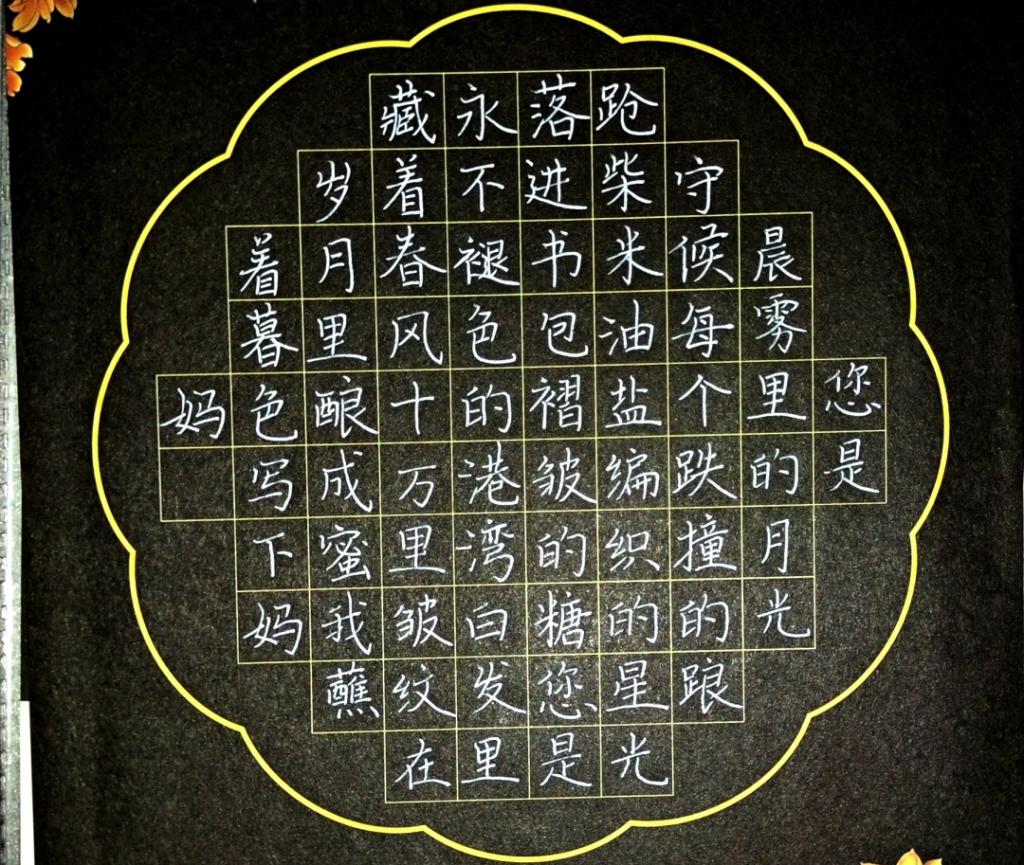 您是
晨雾里的月光
守候每个跌撞的踉
跄柴米油盐编织的星光
落进书包褶皱的糖您是
永不褪色的港湾白发里
藏着春风十万里皱纹在
岁月里酿成蜜我蘸
着暮色写下妈
妈